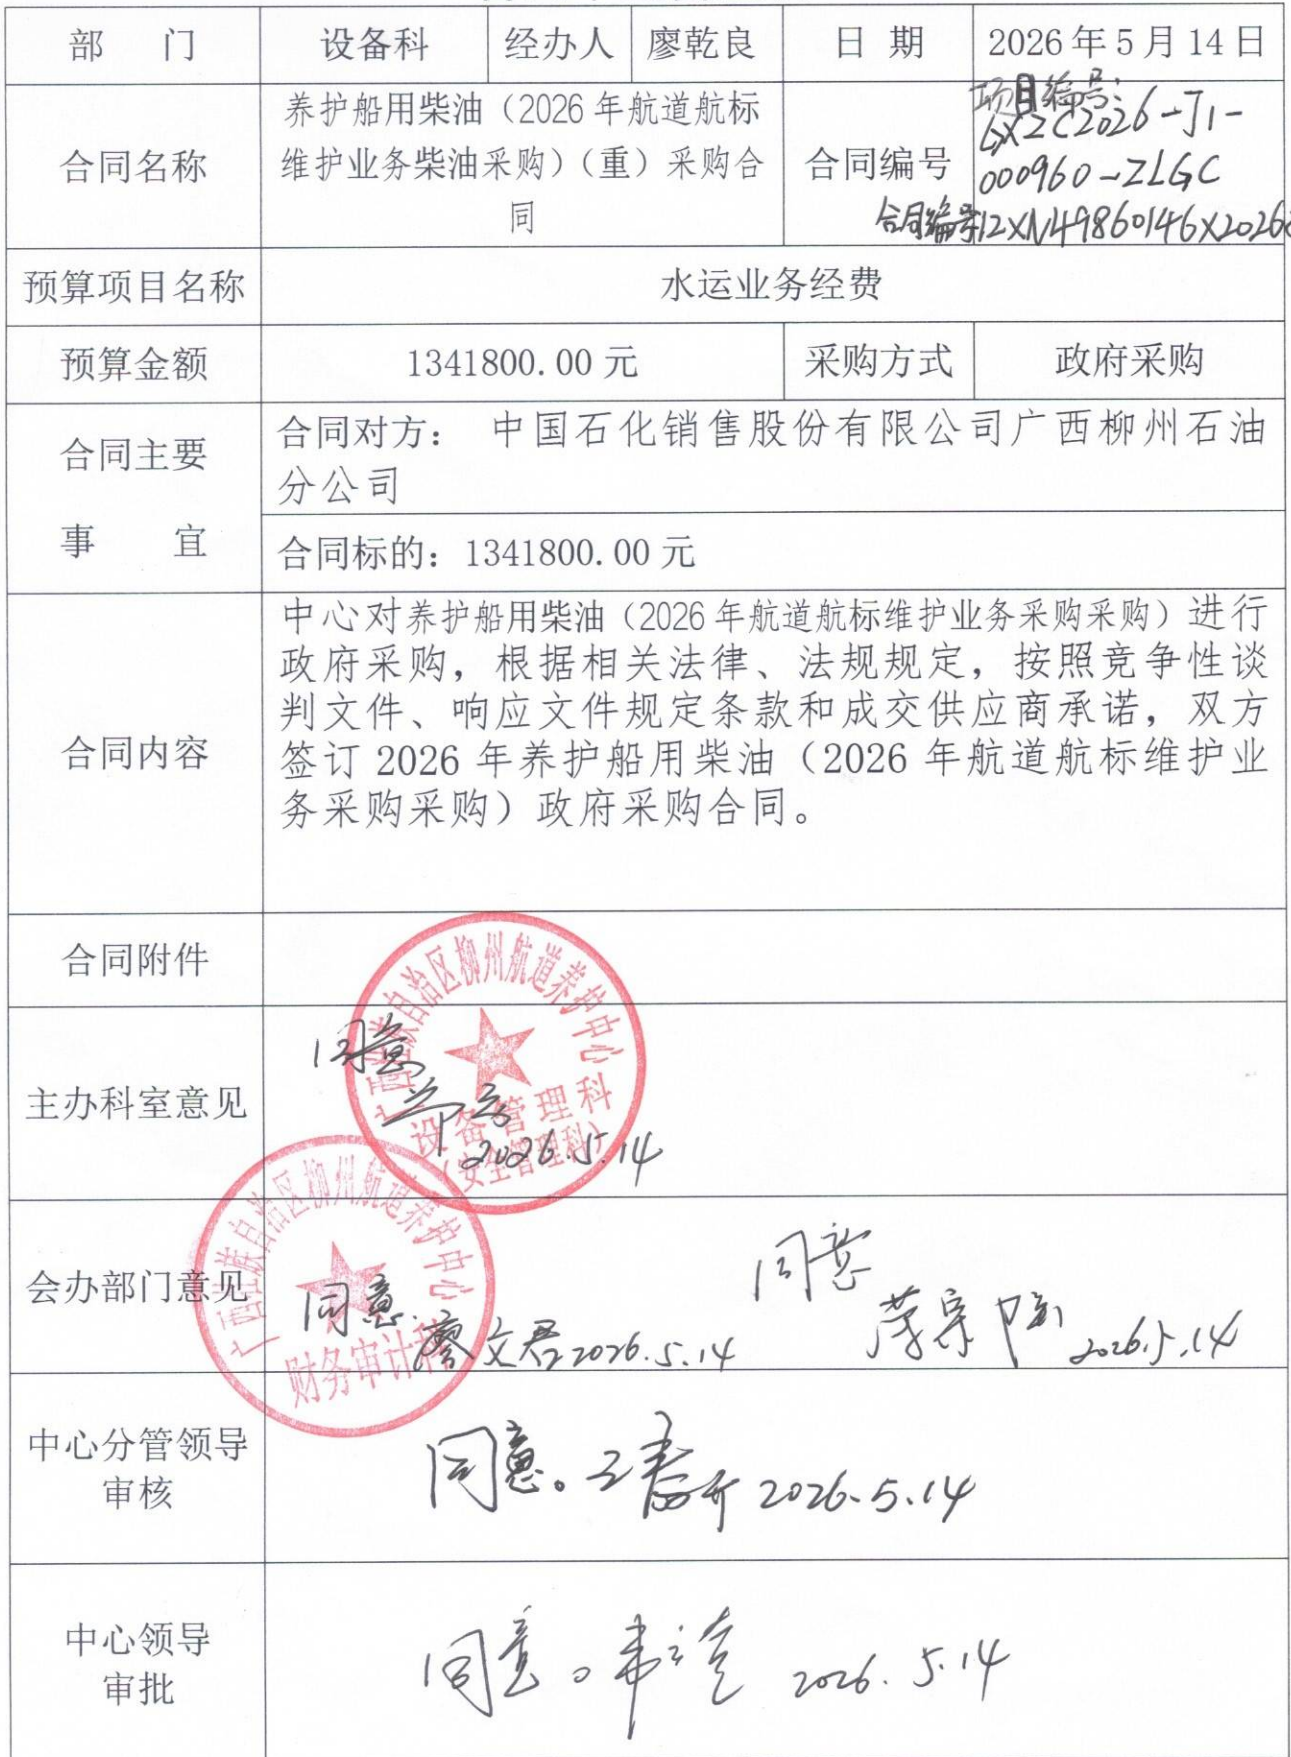 部 门 设备科 经办人 廖乾良 日 期 2026年5月14日
合同名称
养护船用柴油（2026年航道航标
维护业务柴油采购）（重）采购合
同
合同编号
项目编号:
GXZC2026-J1-
000960-ZLGC
合同编号12XN49860146X2026
预算项目名称 水运业务经费
预算金额 1341800.00元 采购方式 政府采购
合同主要
事 宜
合同对方： 中国石化销售股份有限公司广西柳州石油
分公司
合同标的：1341800.00元
合同内容
中心对养护船用柴油（2026年航道航标维护业务采购采购）进行
政府采购，根据相关法律、法规规定，按照竞争性谈
判文件、响应文件规定条款和成交供应商承诺，双方
签订2026年养护船用柴油（2026年航道航标维护业
务采购采购）政府采购合同。
合同附件
主办科室意见
同意
2026.5.14
广西壮族自治区柳州航道养护中心
设备管理科
（安全管理科）
会办部门意见
同意.
廖文君2026.5.14
同意
2026.5.14
广西壮族自治区柳州航道养护中心
财务审计科
中心分管领导
审核
同意。
2026.5.14
中心领导
审批
同意。
2026.5.14